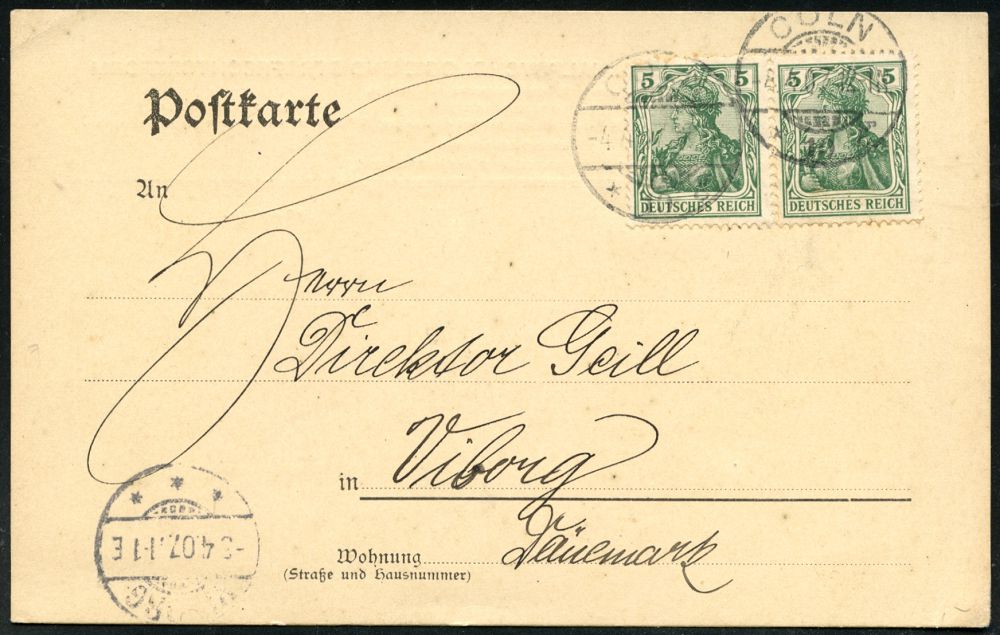 Postkarte
CÖLN
5 5
DEUTSCHES REICH
5 5
DEUTSCHES REICH
An
Herrn
Direktor Geill
in Viborg
Dänemark
Wohnung
(Straße und Hausnummer)
4.07. 1-1 E